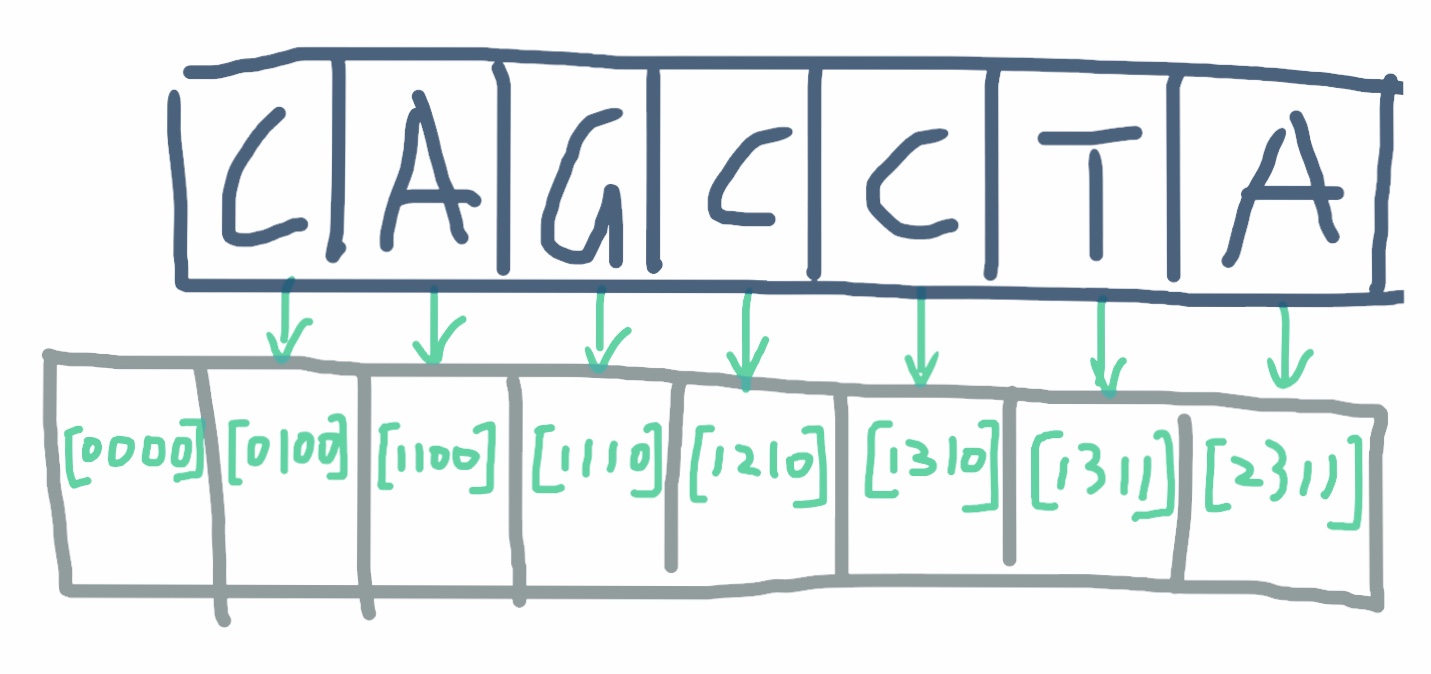 C A G C C T A
[0000] [0100] [1100] [1110] [1210] [1310] [1311] [2311]